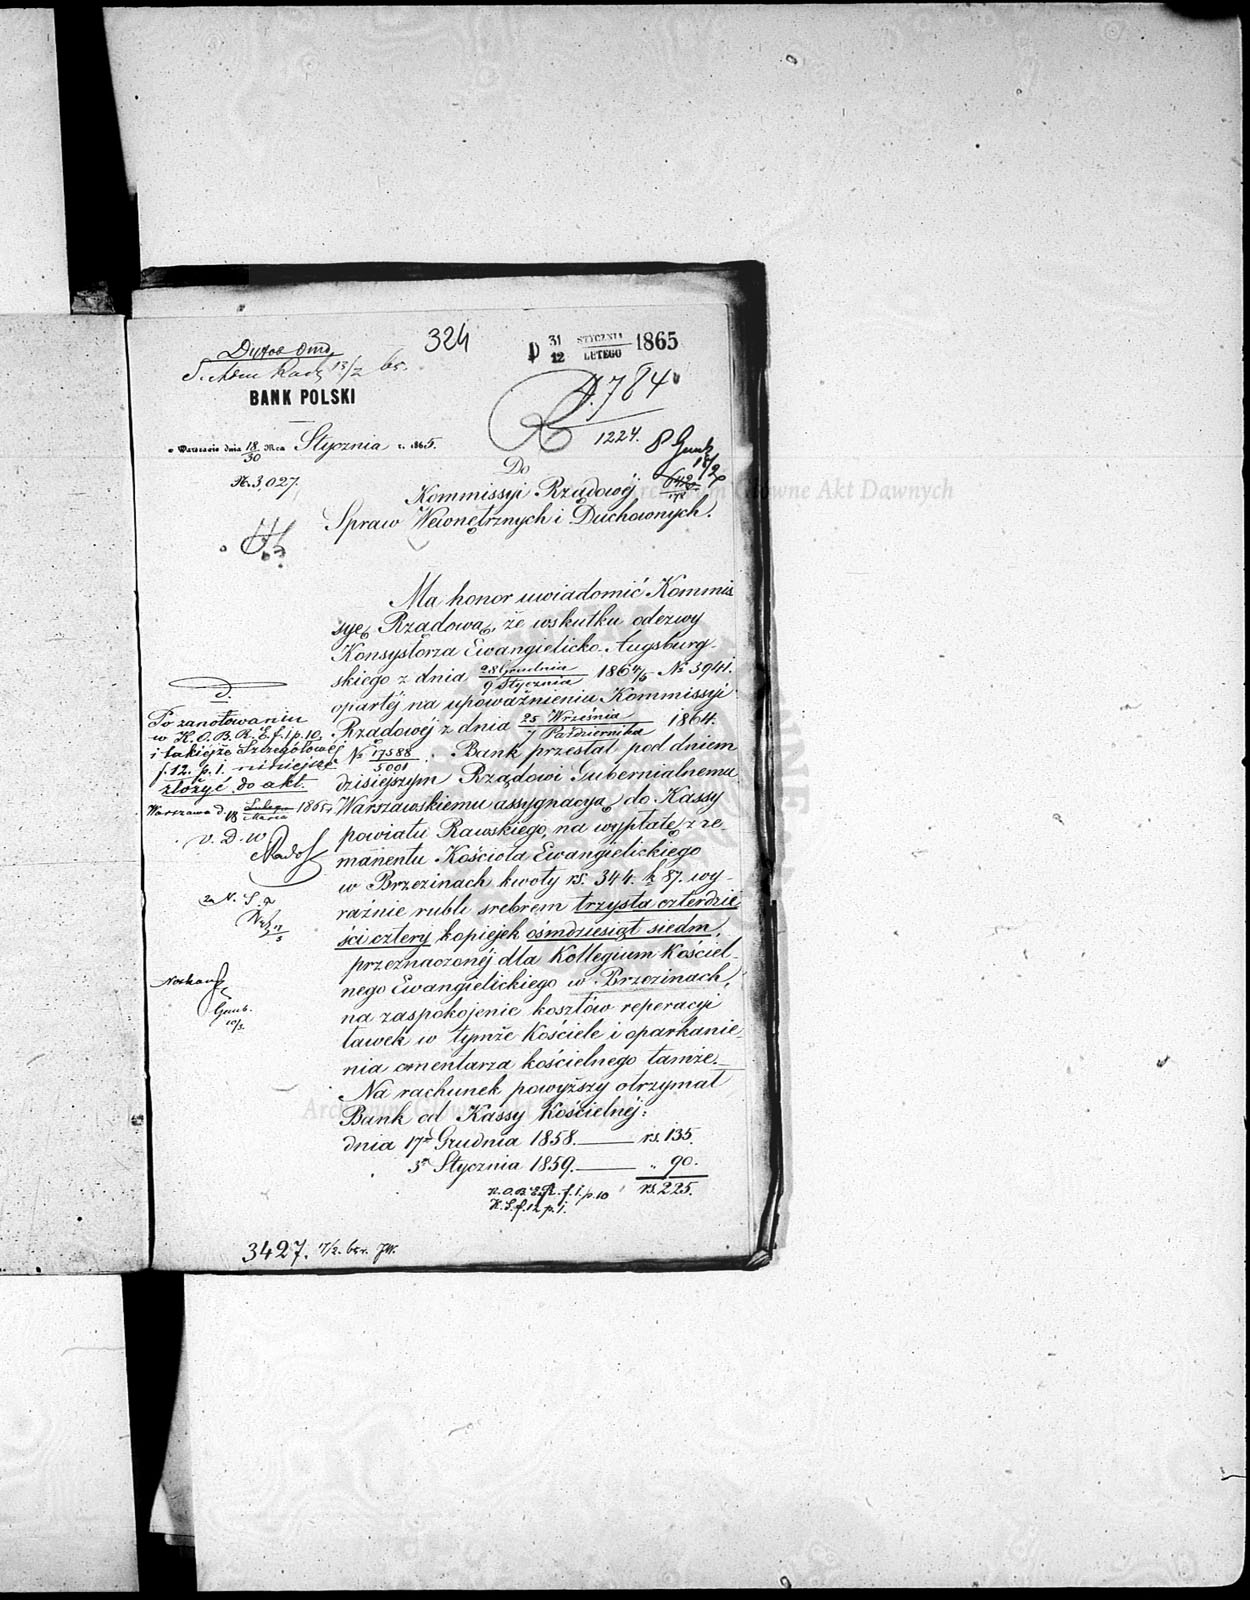 324
D 31 STYCZNIA 1865
12 LETEGO
BANK POLSKI
w Warszawie dnia 18 Mca Stycznia r. 1865.
30
N. 3,027.
784
1224.
Do
Kommissyi Rządowéj
Spraw Wewnętrznych i Duchownych.
Ma honor uwiadomić Kommis
syę Rządową, że wskutku odezwy
Konsystorza Ewangielicko-Augsburg-
skiego z dnia 28 Grudnia 1864/5 № 3941.
9 Stycznia
opartéj na upoważnieniu Kommissyi
Rządowéj z dnia 25 Września 1864.
7 Października
№ 17588 . Bank przesłał pod dniem
5001
dzisiejszym Rządowi Gubernialnemu
Warszawskiemu assygnacyą do Kassy
powiatu Rawskiego, na wypłatę z re-
manentu Kościoła Ewangielickiego
w Brzezinach kwoty rs. 344. k 87. wy-
raźnie rubli srebrem trzysta czterdzie
ści cztery kopiejek ośmdziesiąt siedm,
przeznaczonéj dla Kollegium Kościel-
nego Ewangielickiego w Brzezinach,
na zaspokojenie kosztów reperacyi
ławek w tymże Kościele i oparkanie-
nia cmentarza kościelnego tamże.
Na rachunek powyższy otrzymał
Bank od Kassy Kościelnéj:
dnia 17 Grudnia 1858. rs. 135.
3 Stycznia 1859. „ 90.
rs. 225.
K.O.B. f.1. p.10
K.S. f.12 p.1.
d.
Po zanotowaniu
w K.O.B.R. f.1 p.10
i takiejże Szczegółowej
f.12. p.1. niniejsze
złożyć do akt.
Warszawa d. 18 1865 r.
v. D. W
3427.
Archiwum Główne Akt Dawnych
Archiwum Główne Akt Dawnych